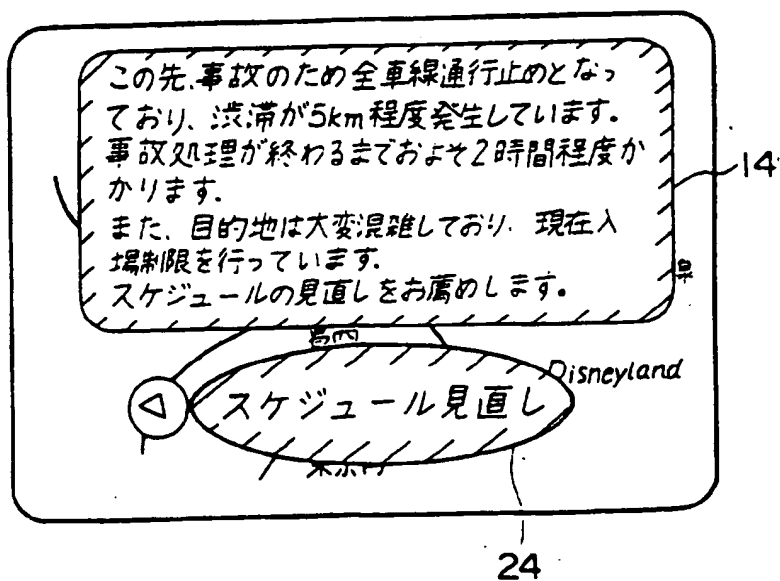 この先、事故のため全車線通行止めとなっ
ており、渋滞が5km程度発生しています。
事故処理が終わるまでおよそ2時間程度か
かります.
また、目的地は大変混雑しており、現在入
場制限を行っています.
スケジュールの見直しをお薦めします。
14
Disneyland
スケジュール見直し
24